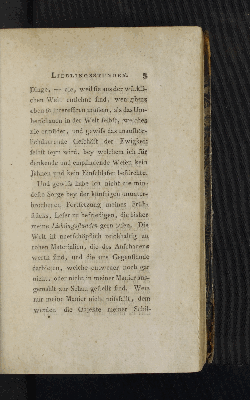 LIEBLINGSSTUNDEN. 3
Dinge, — die, weil sie aus der wirkli-
chen Welt entlehnt sind, wenigstens
eben so interessiren müssen, als das Um-
herschauen in der Welt selbst, welches
nie ermüdet, und gewiss das unaufhör-
Geschäft der Ewigkeit
selbst seyn wird, bey welchem ich für
denkende und empfindende Wesen kein
Jähnen und kein Einschlafen befürchte.
Und gewiss habe ich nicht die min-
deste Sorge bey der künftigen ununter-
brochenen Fortsetzung meines Früh-
stücks, Leser zu befriedigen, die bisher
meine Lieblingsstunden gern sahen. Die
Welt ist unerschöpflich reichhaltig an
rohen Materialien, die des Anschauens
werth sind, und die uns Gegenstände
darbieten, welche entweder noch gar
nicht, oder nicht in meiner Manier aus-
gemahlt zur Schau gestellt sind. Wem
nur meine Manier nicht missfällt, dem
werden die Objekte meiner Schil-